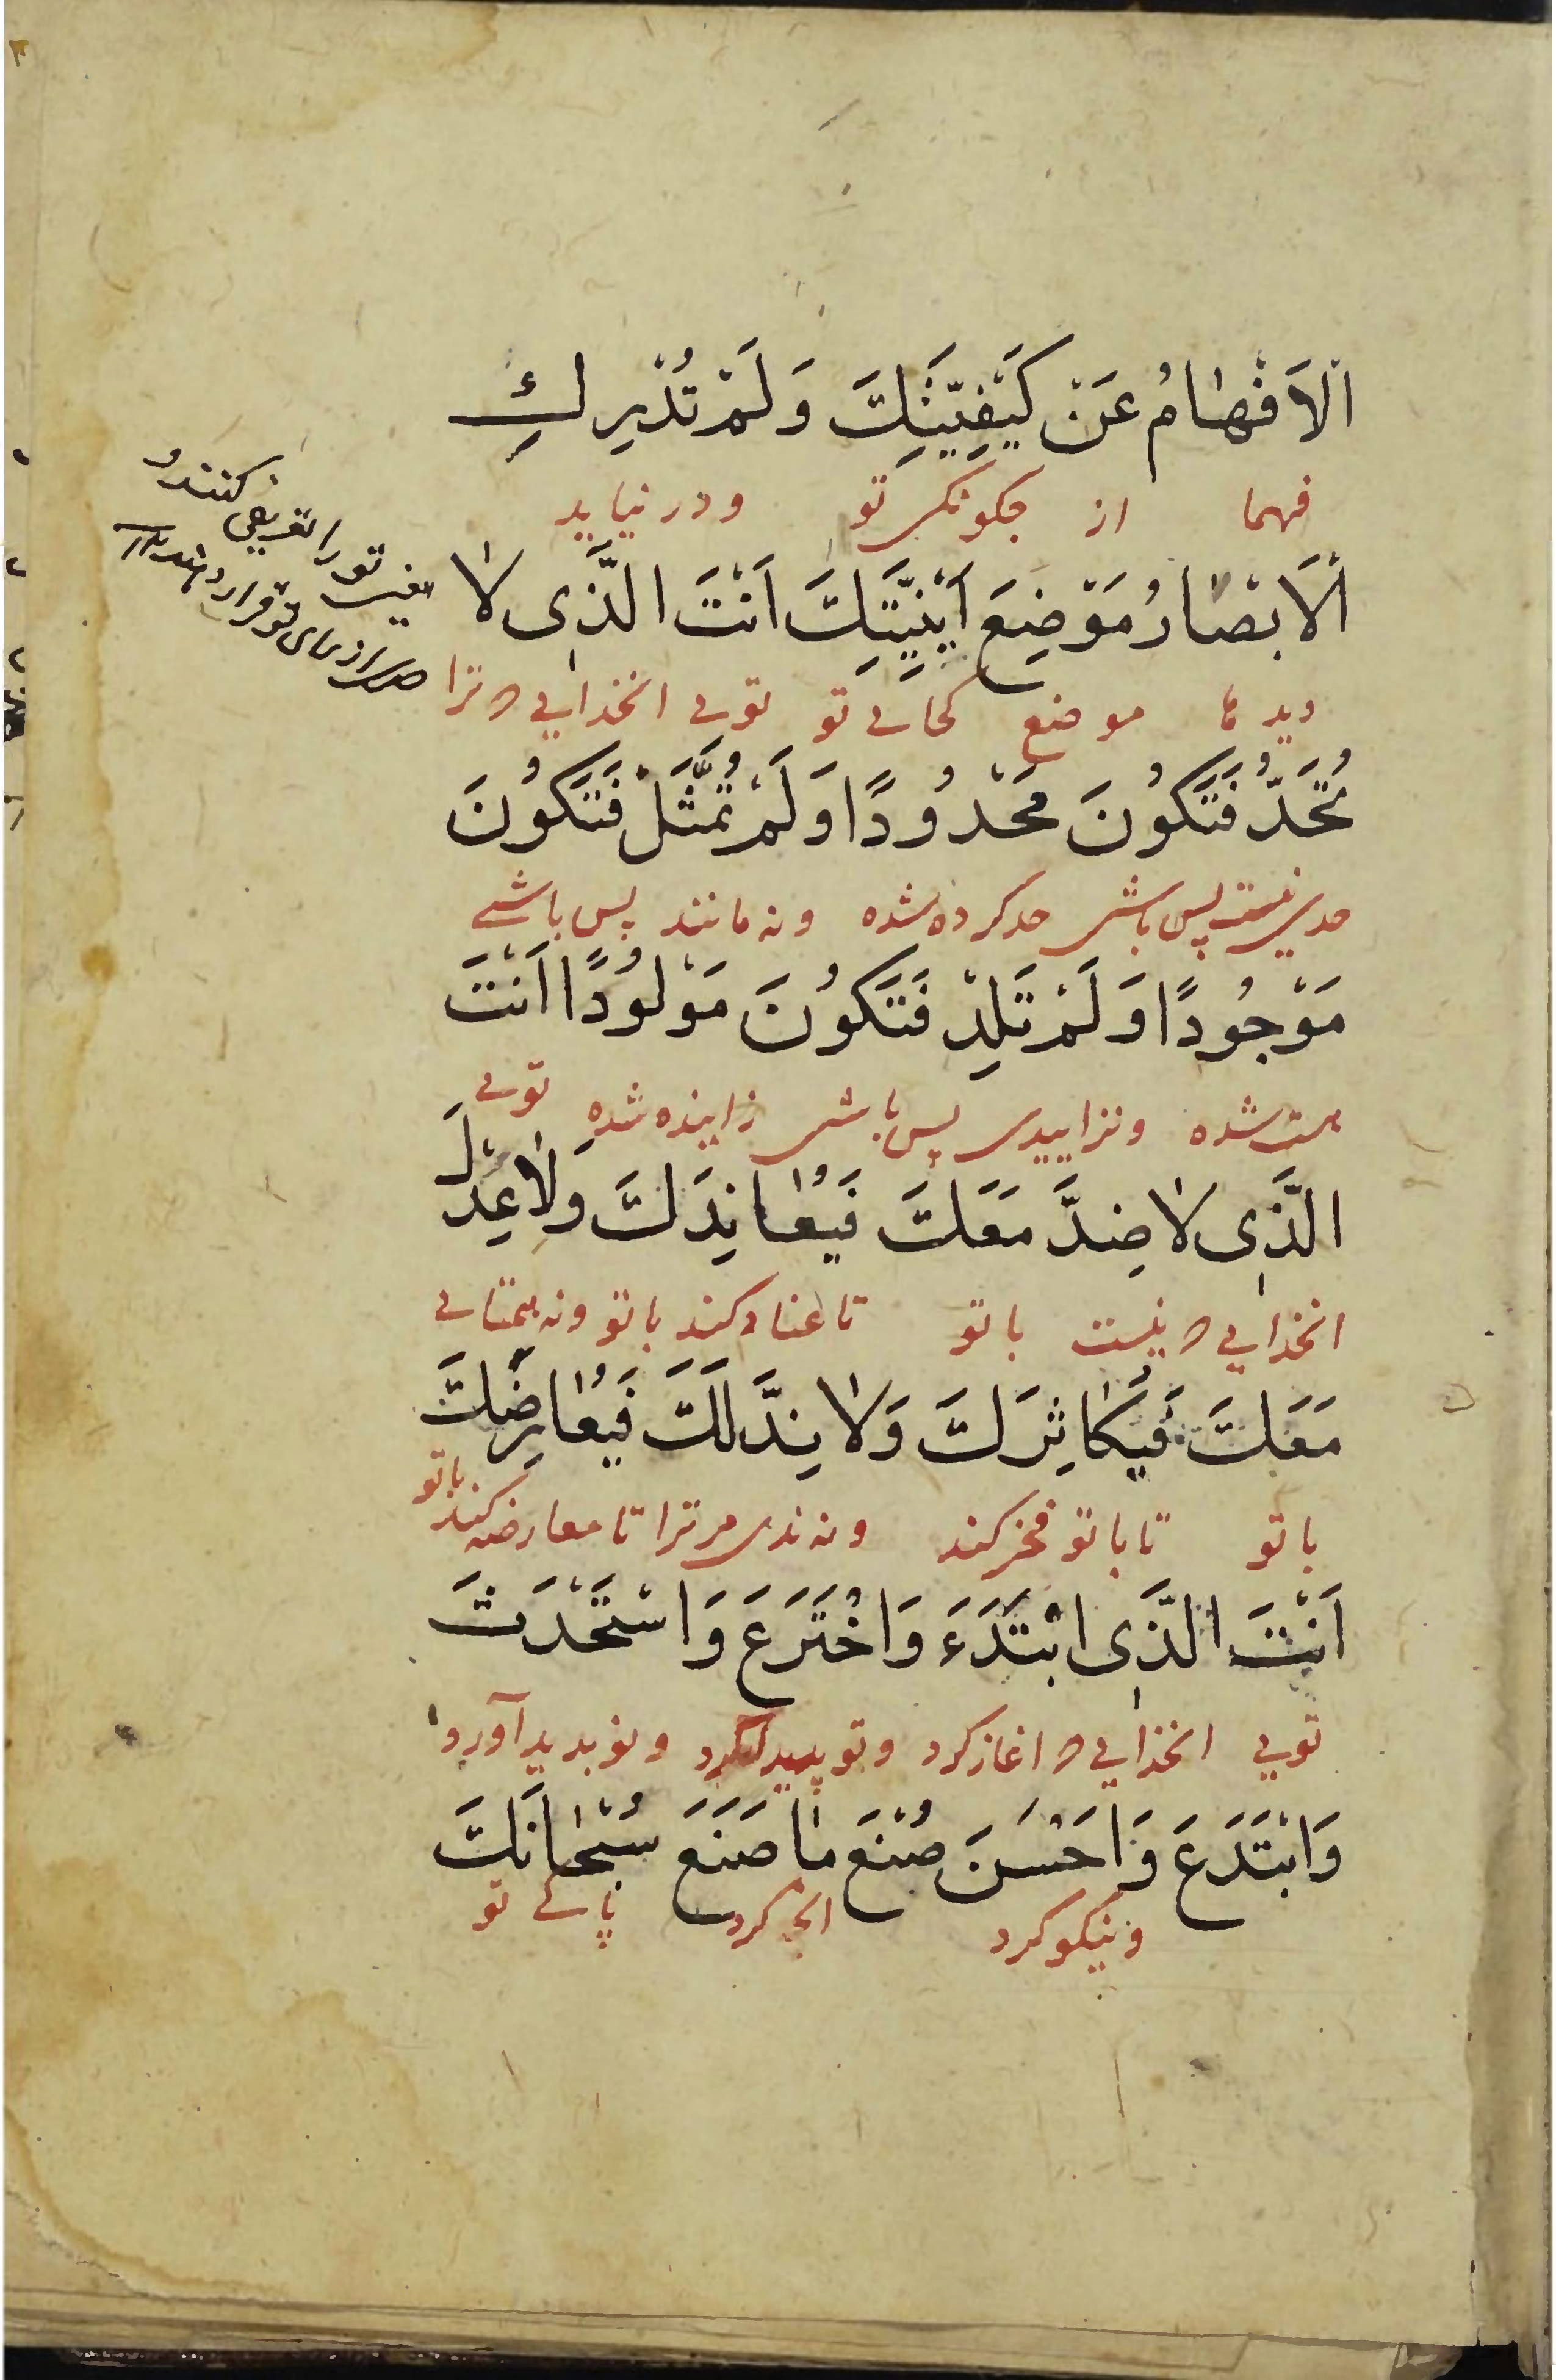 اَلْاَفْهٰامُ عَنْ كَيْفِيَّتِكَ وَلَمْ تُدْرِكِ
فهمها از چکونکی تو ودر نیابد
اَلْاَبْصٰارُ مَوْضِعَ اَيْنِيَّتِكَ اَنْتَ الَّذِى لاٰ
دیدها موضع کجائے تو توئے انخدایی که ترا
تُحَدُّ فَتَكُونَ مَحْدُودًا وَلَمْ تُمَثَّلْ فَتَكُونَ
حدی نیست پس باشی حد کرده شده ونه مانند پس باشے
مَوْجُودًا وَلَمْ تَلِدْ فَتَكُونَ مَوْلُودًا اَنْتَ
هست شده ونزاییدی پس باشی زاینده شده توئے
الَّذِى لاٰ ضِدَّ مَعَكَ فَيُعٰانِدَكَ وَلاٰ عِدْلَ
انخدایی که نیست با تو تا عناد کند با تو ونه همتائے
مَعَكَ فَيُكٰاثِرَكَ وَلاٰ نِدَّ لَكَ فَيُعٰارِضَكَ
با تو تا با تو فخر کند ونه ندی مر ترا تا معارضه کند با تو
اَنْتَ الَّذِى ابْتَدَءَ وَاخْتَرَعَ وَاسْتَحْدَثَ
تویی انخدایی که اغاز کرد ونو پدید کرد ونو بدید آورد
وَابْتَدَعَ وَاَحْسَنَ صُنْعَ مٰا صَنَعَ سُبْحٰانَكَ
ونیکو کرد انچه کرد پاکے تو
تو را تعریفی کنند و
از برای تو قرار دهند